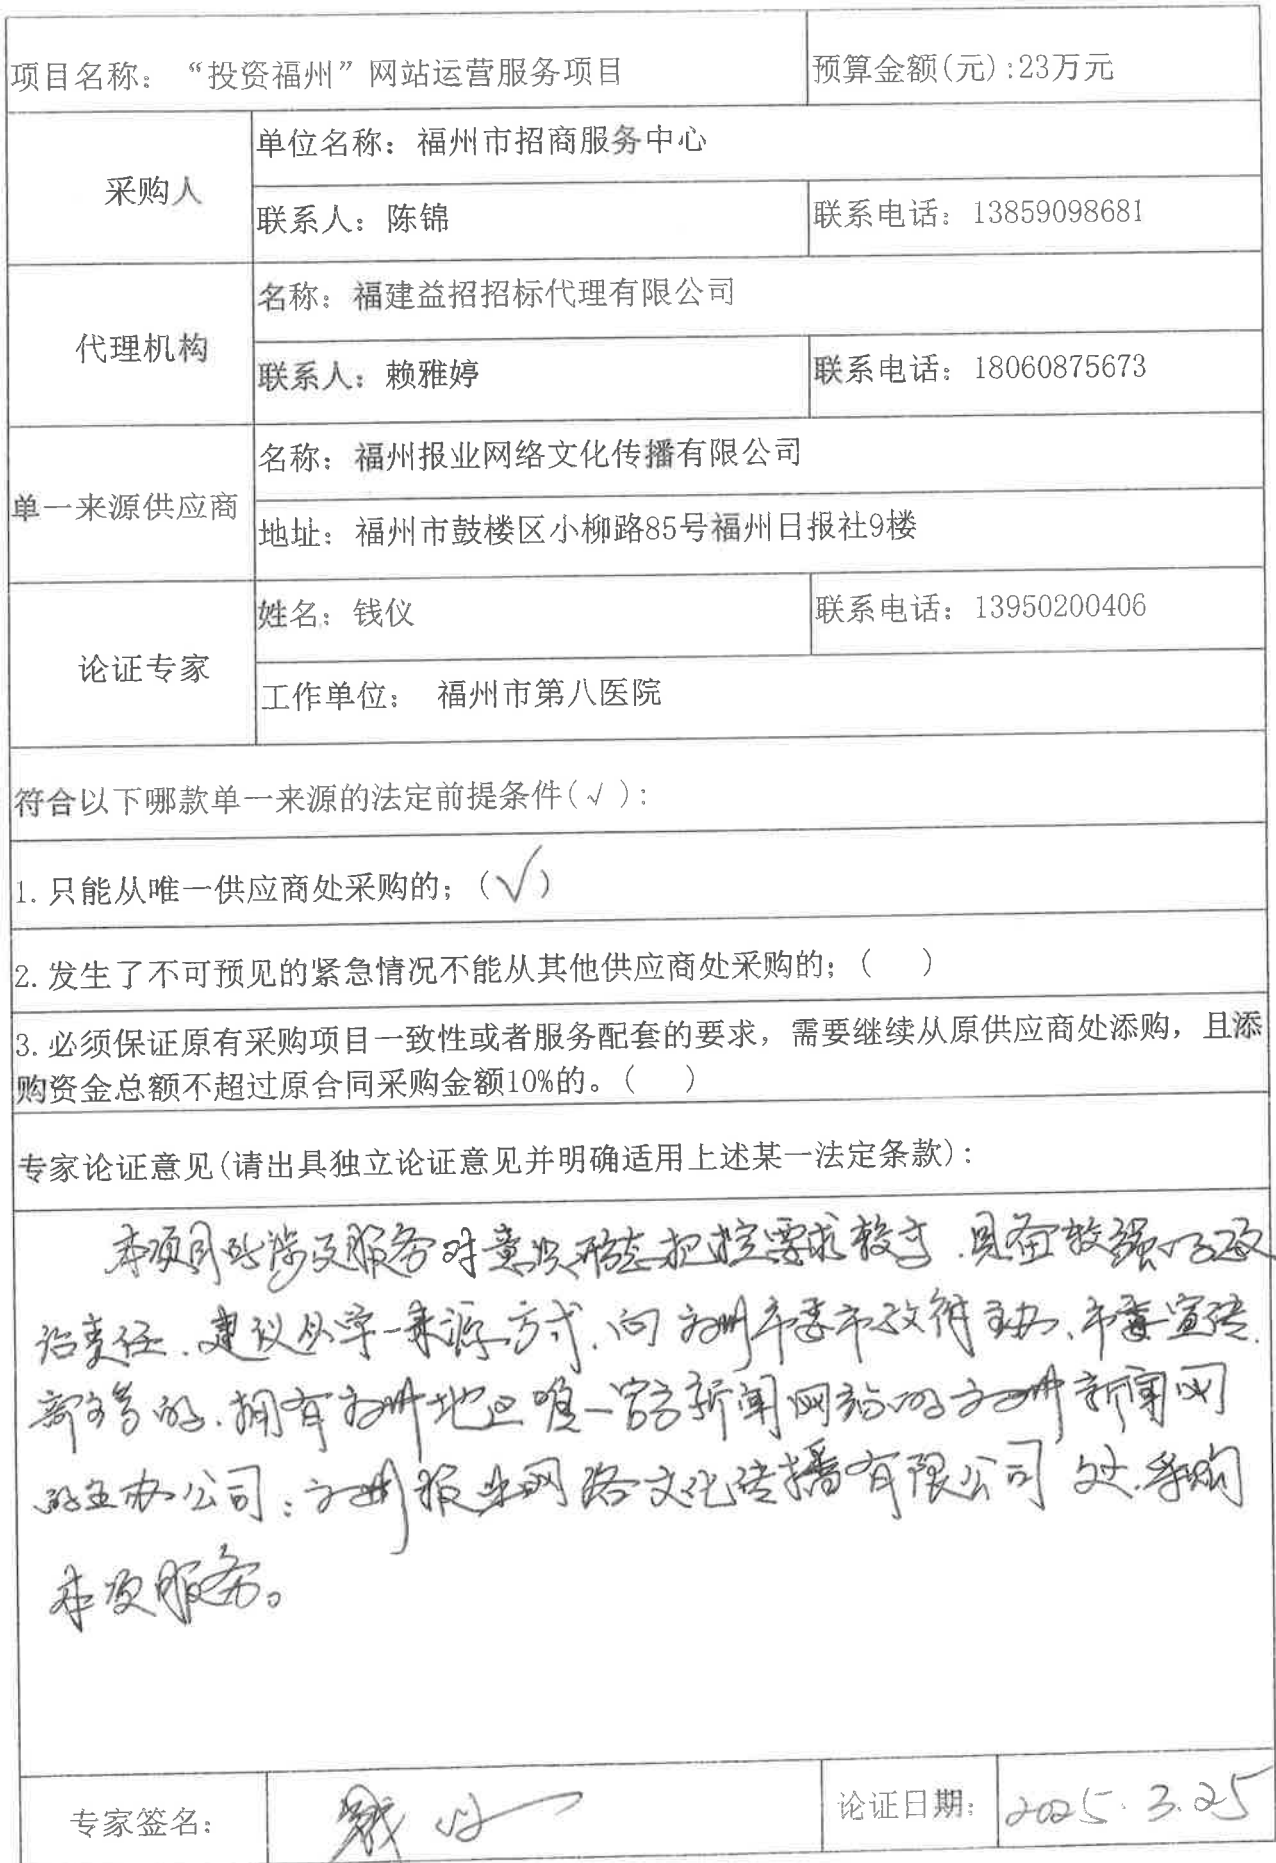 项目名称：“投资福州”网站运营服务项目
预算金额(元):23万元
采购人
单位名称：福州市招商服务中心
联系人：陈锦
联系电话：13859098681
代理机构
名称：福建益招招标代理有限公司
联系人：赖雅婷
联系电话：18060875673
单一来源供应商
名称：福州报业网络文化传播有限公司
地址：福州市鼓楼区小柳路85号福州日报社9楼
论证专家
姓名：钱仪
联系电话：13950200406
工作单位： 福州市第八医院
符合以下哪款单一来源的法定前提条件(√)：
1. 只能从唯一供应商处采购的；(√)
2. 发生了不可预见的紧急情况不能从其他供应商处采购的；( )
3. 必须保证原有采购项目一致性或者服务配套的要求，需要继续从原供应商处添购，且添
购资金总额不超过原合同采购金额10%的。( )
专家论证意见(请出具独立论证意见并明确适用上述某一法定条款)：
本项目所涉及服务对意识形态把控要求较高，具备较强的政
治责任，建议从单一来源方式，向福州市委市政府主办、市委宣传
部主管的，拥有福州地区唯一官方新闻网站的福州新闻网
的主办公司：福州报业网络文化传播有限公司处采购
本项服务。
专家签名：
钱仪
论证日期：
2025.3.25